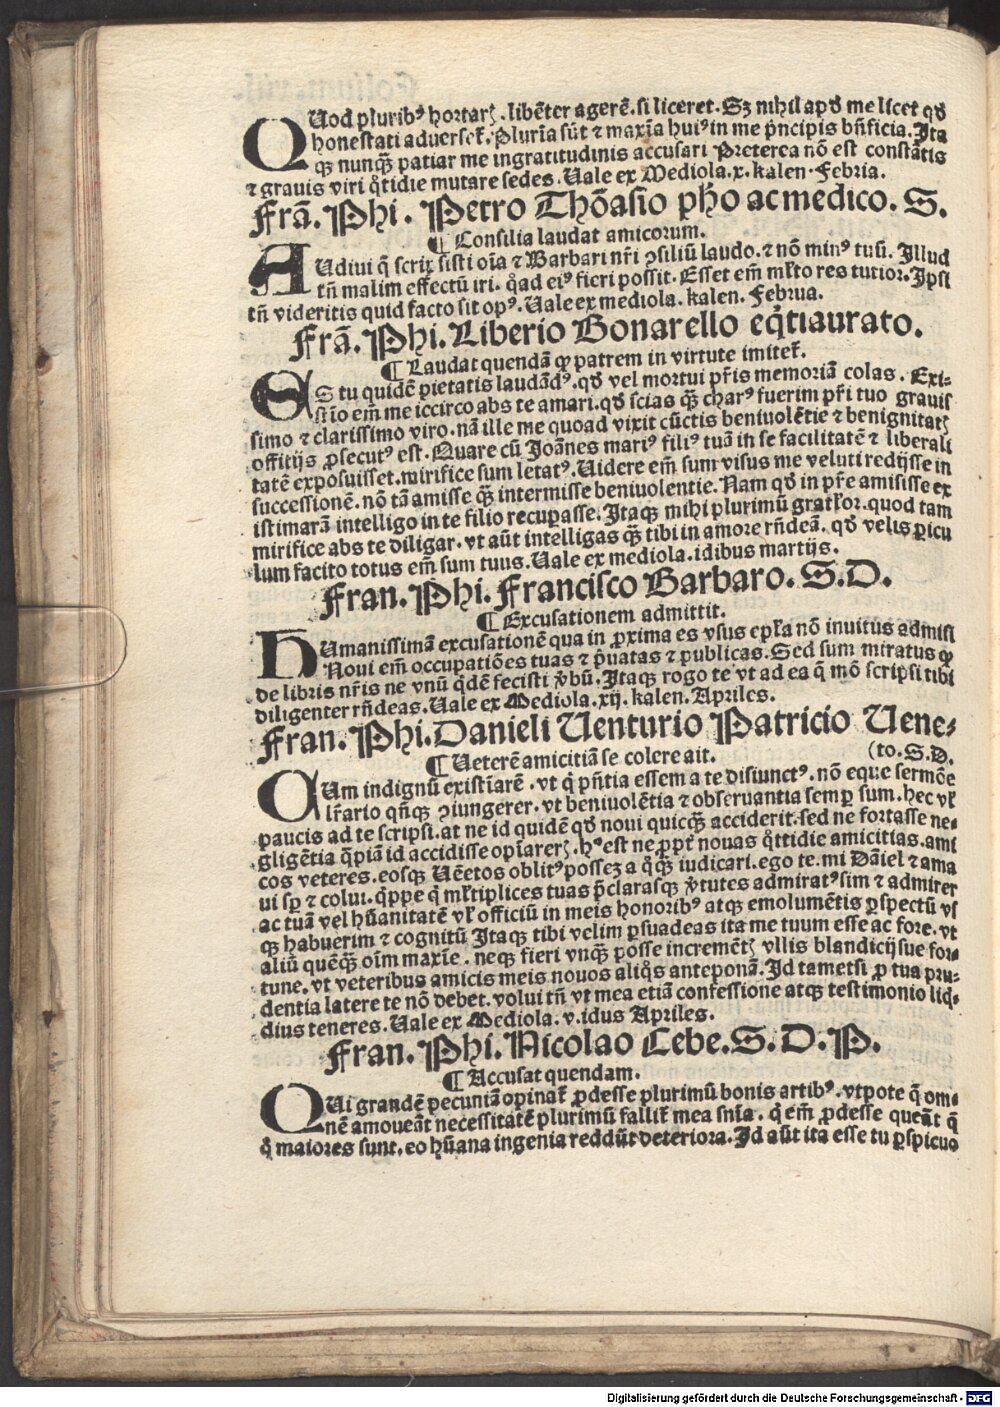 QUod pluribꝰ hortarꝫ. libēter agerē. si liceret. Sꝫ nihil apđ me licet qđ
honestati aduersetᷣ. Plurīa sūt ⁊ maxīa huiꝰ in me pͥncipis bn̄ficia. Ita
qꝫ nunqꝫ̄ patiar me ingratitudinis accusari Preterea nō est constātis
⁊ grauis viri qͦtidie mutare sedes. Uale ex Mediola. x. kalen. Febria.
Frā. Phi. Petro Thōasio pho ac medico. S.
¶ Consilia laudat amicorum.
AUdiui q̄ scrix̄ sisti oīa ⁊ Barbari nr̄i ꝯsiliū laudo. ⁊ nō minꝰ tuū. Illud
tn̄ malim effectū iri. qͦad eiꝰ fieri possit. Esset em̄ ml̄to res tutior. Ipsi
tn̄ videritis quid facto sit opꝰ. Uale ex mediola. kalen. Februa.
Frā. Phi. Liberio Bonarello eq̄tiaurato.
¶ Laudat quendā ꝙ patrem in virtute imitetᷣ.
ES tu quidē pietatis laudādꝰ. qđ vel mortui pr̄is memoriā colas. Exi-
stīo em̄ me iccirco abs te amari. qđ scias qꝫ̄ charꝰ fuerim pr̄i tuo grauis
simo ⁊ clarissimo viro. nā ille me quoad vixit cūctis beniuolētie ⁊ benignitatꝫ
offitijs ꝓsecutꝰ est. Quare cū Joānes mariꝰ filiꝰ tuā in se facilitatē ⁊ liberali
tatē exposuisset. mirifice sum letatꝰ. Uidere em̄ sum visus me veluti redijsse in
successionē. nō tā amisse qꝫ̄ intermisse beniuolentie. Nam qđ in pr̄e amisisse ex
istimarā intelligo in te filio recuꝑasse. Itaqꝫ mihi plurimū gratl̄or. quod tam
mirifice abs te diligar. vt aūt intelligas qꝫ̄ tibi in amore rn̄deā. qđ velis ꝑicu
lum facito totus em̄ sum tuus. Uale ex mediola. idibus martijs.
Fran. Phi. Francisco Barbaro. S. D.
¶ Excusationem admittit.
HUmanissimā excusationē qua in ꝓxima es vsus epl̄a nō inuitus admisi
Noui em̄ occupatiōes tuas ⁊ pͥuatas ⁊ publicas. Sed sum miratus ꝙ
de libris nr̄is ne vnū qͥdē fecisti v̄bū. Itaqꝫ rogo te vt ad ea q̄ mō scripsi tibi
diligenter rn̄deas. Uale ex Mediola. xij. kalen. Apriles.
Fran. Phi. Danieli Uenturio Patricio Uene-
¶ Ueterē amicitiā se colere ait. (to. S. D.
CUm indignū existīarē. vt qͥ pn̄tia essem a te disiunctꝰ. nō eque sermōe
lr̄ario qn̄qꝫ ꝯiungerer. vt beniuolētia ⁊ obseruantia semꝑ sum. hec vl̄
paucis ad te scripsi. at ne id quidē qđ noui quicqꝫ̄ acciderit. sed ne fortasse ne-
gligētia q̄piā id accidisse opīarerꝫ. hͦ est ne ꝓpt̄ nouas qͦttidie amicitias. ami
cos veteres. eosqꝫ Uēetos oblitꝰ possēꝫ a qͦqꝫ̄ iudicari. ego te. mi Dāiel ⁊ ama
ui sꝑ ⁊ colui. qͥppe qͥ ml̄tiplices tuas p̄clarasqꝫ v̄tutes admiratꝰ sim ⁊ admirer
ac tuā vel hūanitatē vl̄ officiū in meis honoribꝰ atqꝫ emolumētis ꝑspectū vs
qꝫ habuerim ⁊ cognitū Itaqꝫ tibi velim ꝑsuadeas ita me tuum esse ac fore. vt
aliū quēqꝫ̄ oīm maxīe. neqꝫ fieri vnqꝫ̄ posse incremētꝫ vllis blandicijsue for-
tune. vt veteribus amicis meis nouos aliqͦs anteponā. Id tametsi ꝓ tua pru-
dentia latere te nō debet. volui tn̄ vt mea etiā confessione atqꝫ testimonio liqͥ-
dius teneres. Uale ex Mediola. v. idus Apriles.
Fran. Phi. Nicolao Cebe. S. D. P.
¶ Accusat quendam.
QUi grandē pecuniā opinatᷣ ꝓdesse plurimū bonis artibꝰ. vtpote q̄ om-
nē amoueāt necessitatē plurimū fallitᷣ mea sn̄ia. qͥ em̄ ꝓdesse queāt q̄
qͦ maiores sunt. eo hūana ingenia reddūt deteriora. Id aūt ita esse tu ꝑspicuo
Digitalisierung gefördert durch die Deutsche Forschungsgemeinschaft - DFG